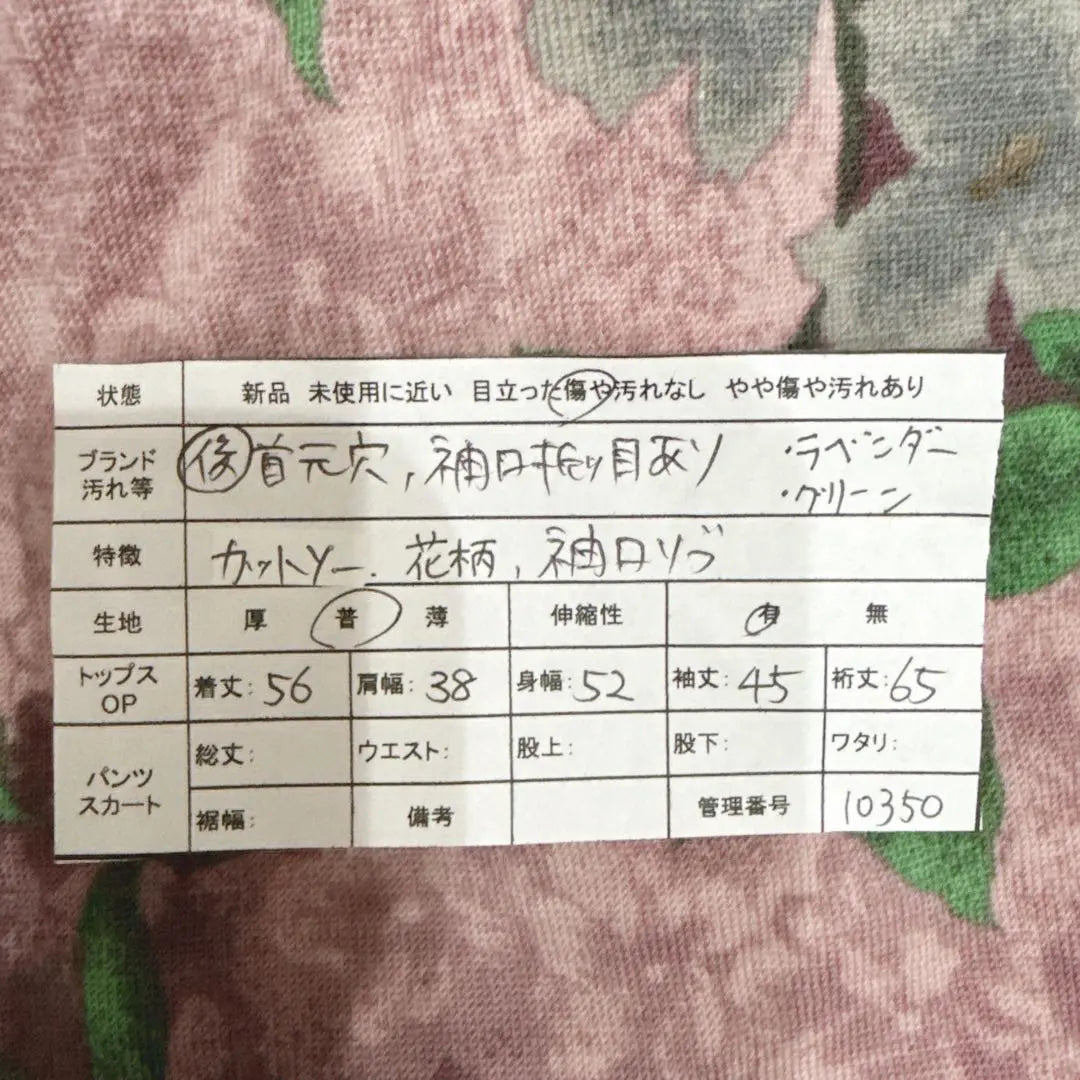 状態 新品 未使用に近い 目立った傷や汚れなし やや傷や汚れあり
ブランド
汚れ等
後 首元穴, 袖口折り目あり
・ラベンダー
・グリーン
特徴 カットソー. 花柄, 袖口リブ
生地 厚 普 薄 伸縮性 有 無
トップス
OP
着丈: 56 肩幅: 38 身幅: 52 袖丈: 45 裄丈: 65
パンツ
スカート
総丈: ウエスト: 股上: 股下: ワタリ:
裾幅: 備考 管理番号 10350